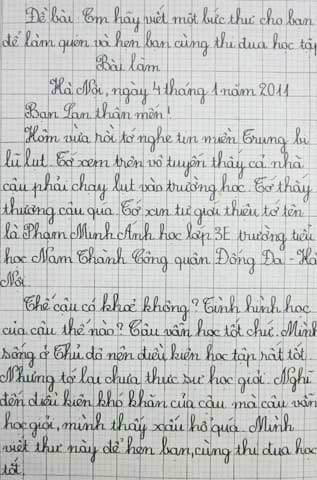 Đề bài: Em hãy viết một bức thư cho bạn
để làm quen và hẹn bạn cùng thi đua học tập
Bài làm
Hà Nội, ngày 4 tháng 1 năm 2011
Bạn Lan thân mến!
Hôm vừa rồi tớ nghe tin miền Trung bị
lũ lụt. Tớ xem trên vô tuyến thấy cả nhà
cậu phải chạy lụt vào trường học. Tớ thấy
thương cậu quá. Tớ xin tự giới thiệu tớ tên
là Phạm Minh Anh học lớp 3E trường tiểu
học Nam Thành Công quận Đống Đa - Hà
Nội.
Thế cậu có khoẻ không? Tình hình học
của cậu thế nào? Cậu vẫn học tốt chứ. Mình
sống ở Thủ đô nên điều kiện học tập rất tốt.
Nhưng tớ lại chưa thực sự học giỏi. Nghĩ
đến điều kiện khó khăn của cậu mà cậu vẫn
học giỏi, mình thấy xấu hổ quá. Mình
viết thư này để hẹn bạn, cùng thi đua học
tốt.